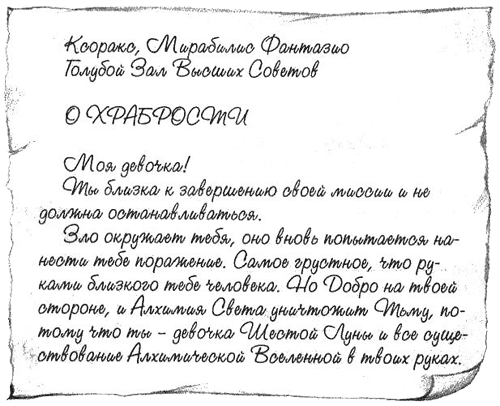 Ксоракс, Мирабилис Фантазио
Голубой Зал Высших Советов
О ХРАБРОСТИ
Моя девочка!
Ты близка к завершению своей миссии и не
должна останавливаться.
Зло окружает тебя, оно вновь попытается на-
нести тебе поражение. Самое грустное, что ру-
ками близкого тебе человека. Но Добро на твоей
стороне, и Алхимия Света уничтожит Тьму, по-
тому что ты – девочка Шестой Луны и все суще-
ствование Алхимической Вселенной в твоих руках.